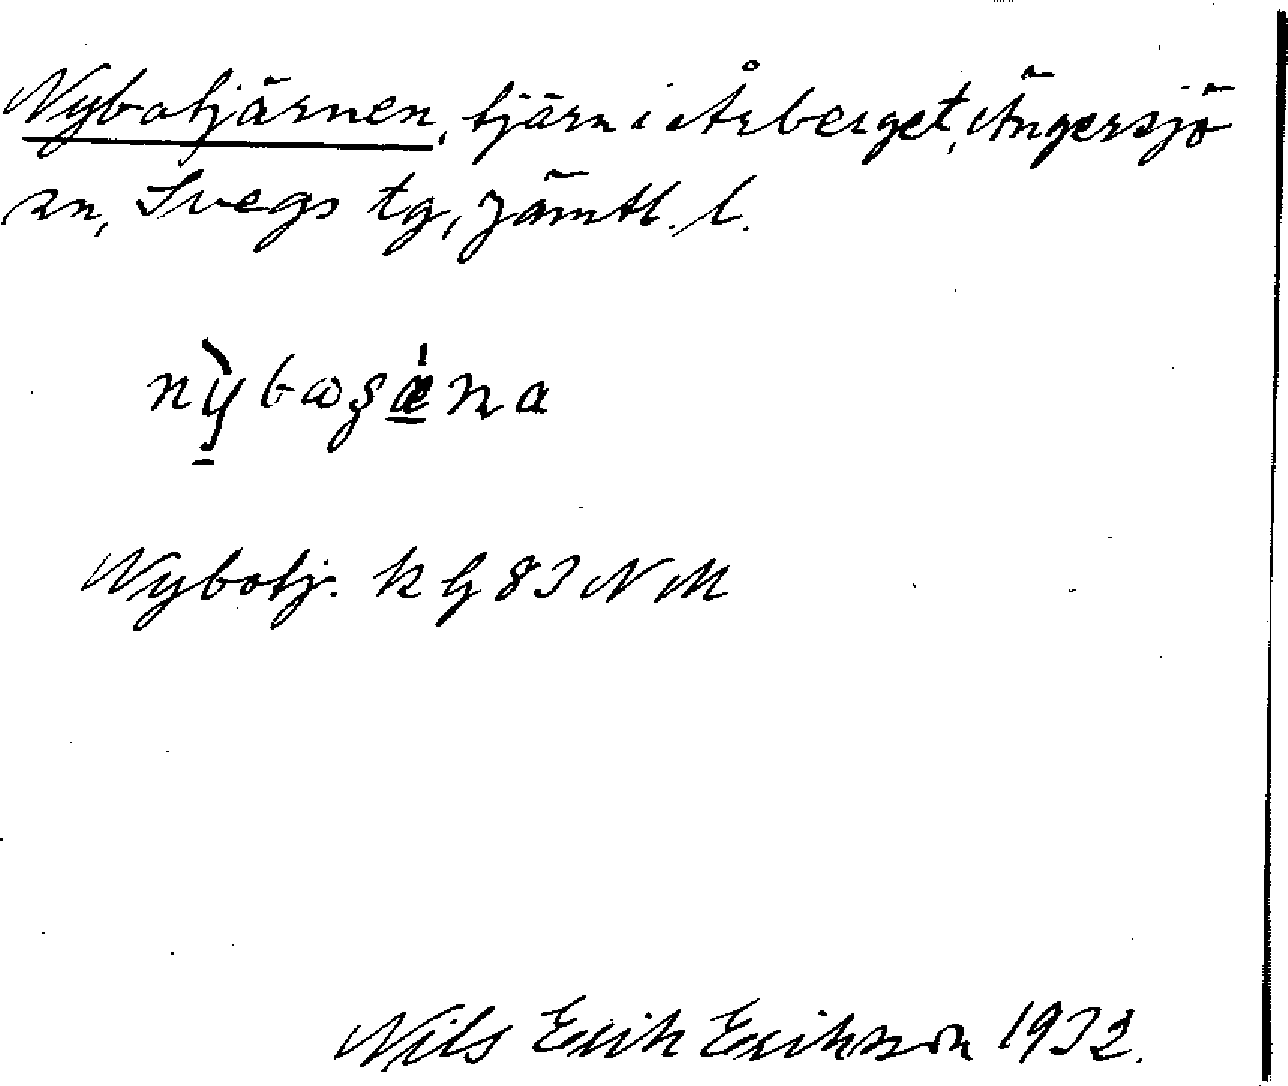 Nybotjärnen, tjärn i Årberget, Ängersjö
sn, Svegs tg, Jämtl. l.
Nybotj. k G 83 NM
Nils Erik Eriksson 1932.